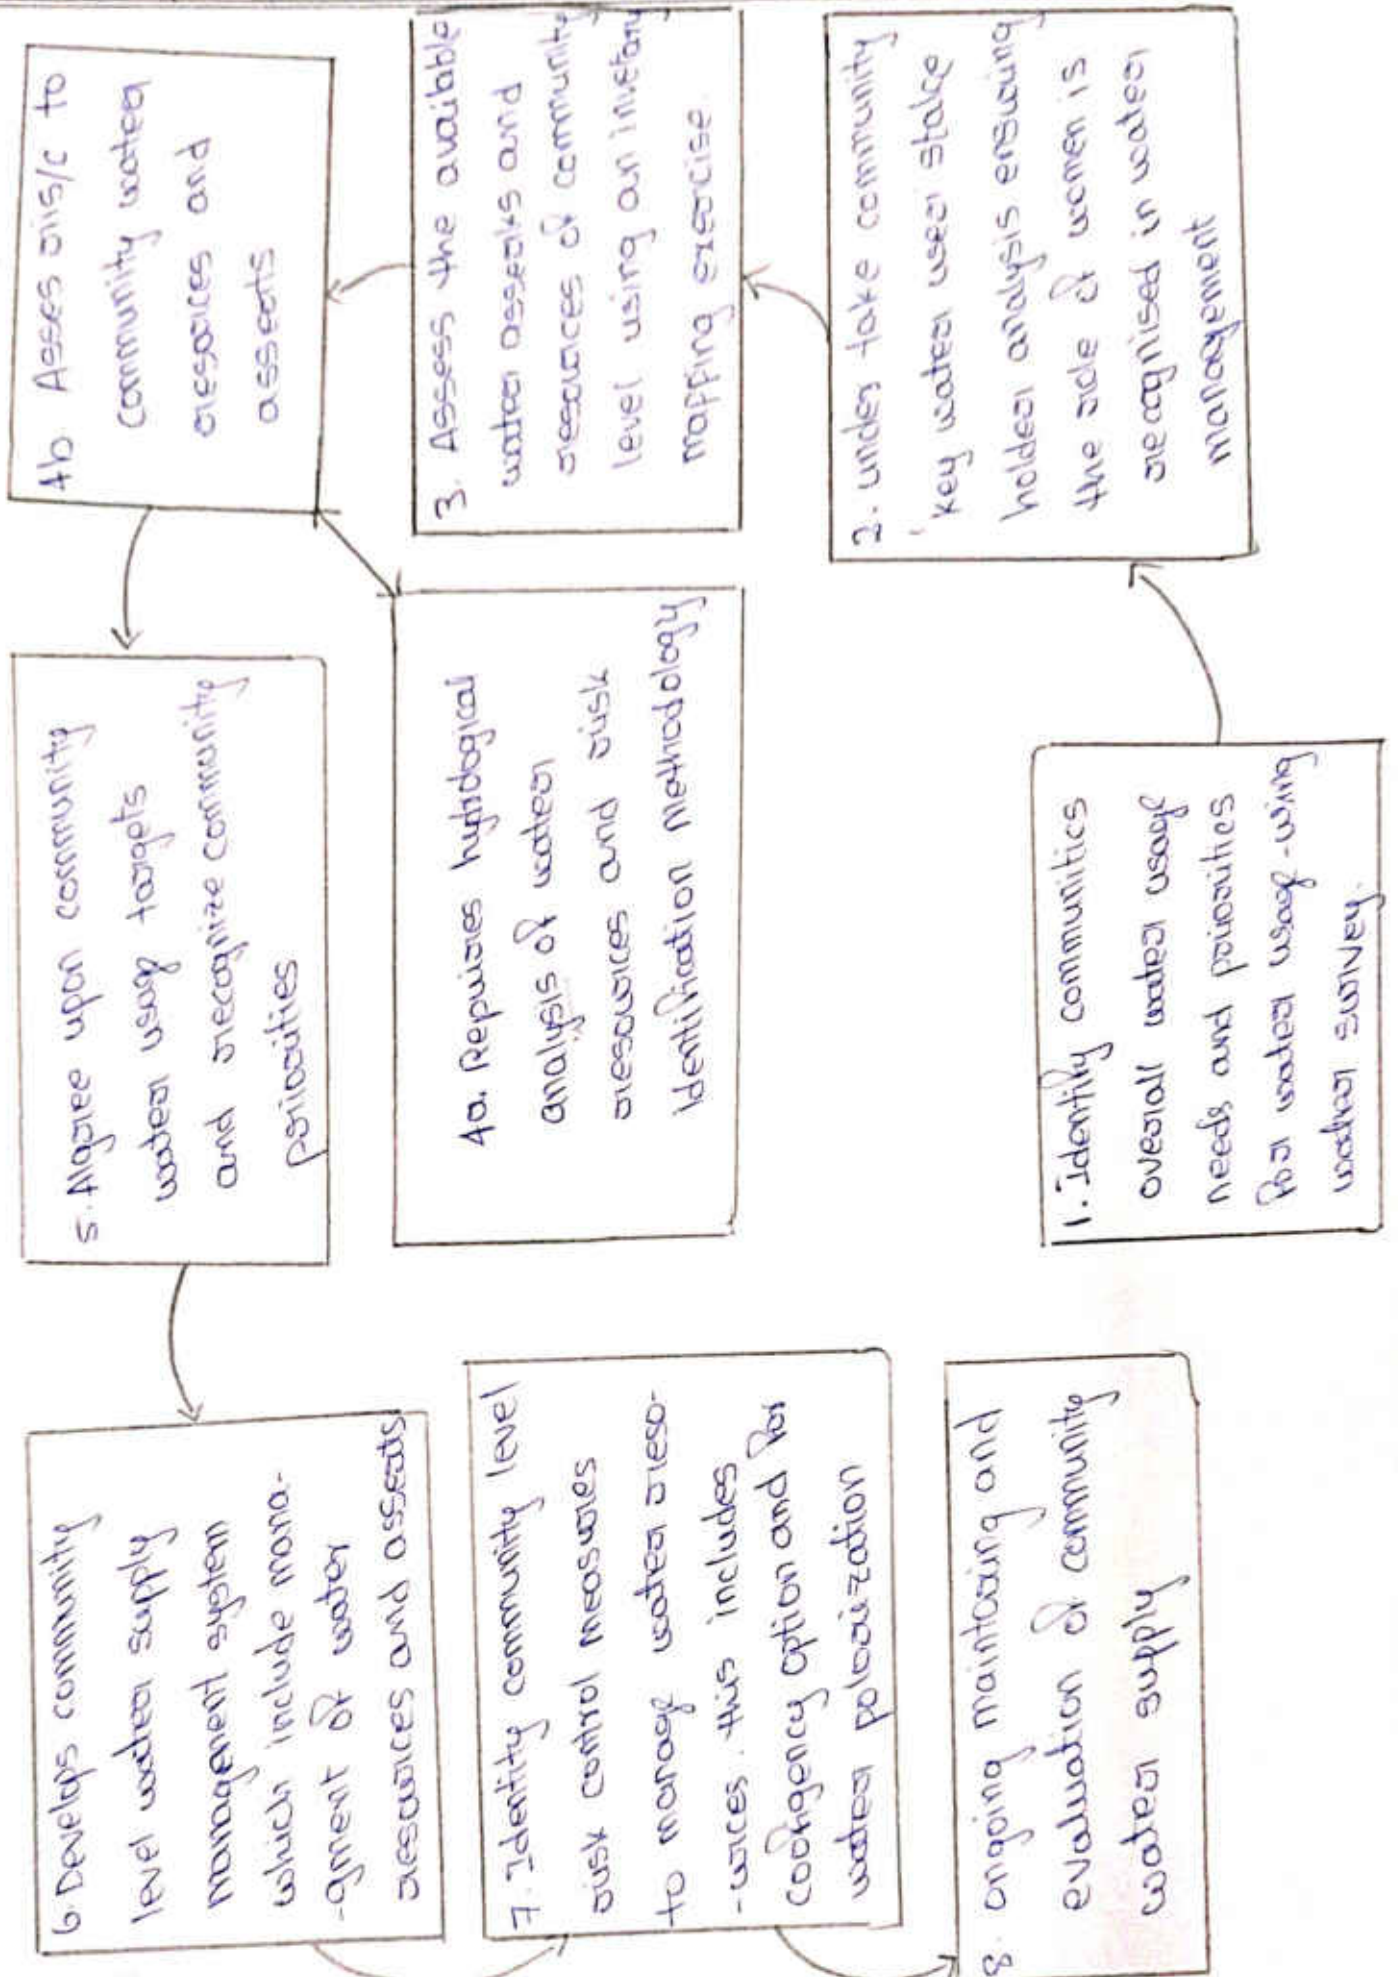 1. Identify communities
overall water usage
needs and priorities
for water usage-using
water survey.
2. under take community
key water user stake
holder analysis ensuring
the role of women is
recognised in water
management
3. Assess the available
water asseats and
resources of community
level using an invetary
mapping exercise.
4a. Requires hydrological
analysis of water
resources and risk
identification methodology
4b Asses ris/c to
community water
resorces and
asseats
5. Algree upon community
water usage targets
and recognize community
priorities
6. Develops community
level water supply
management system
which include mana-
-gment of water
resources and asseats
7. Identity community level
risk control measures
to manage water reso-
-urces. this includes
contingency option and for
water polorization
8. ongoing maintaring and
evaluation of community
water supply